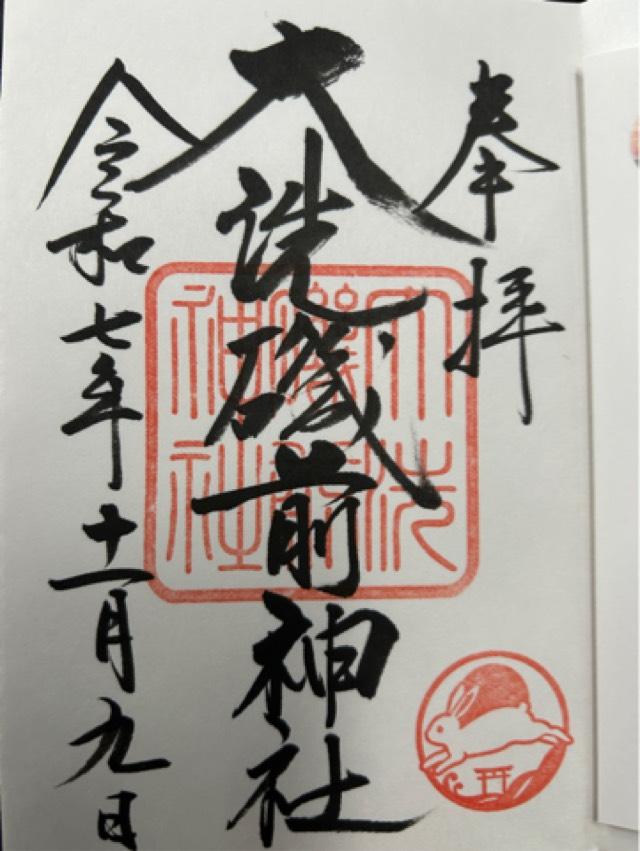 奉拝
大洗磯前神社
大洗磯前神社
令和七年十一月九日